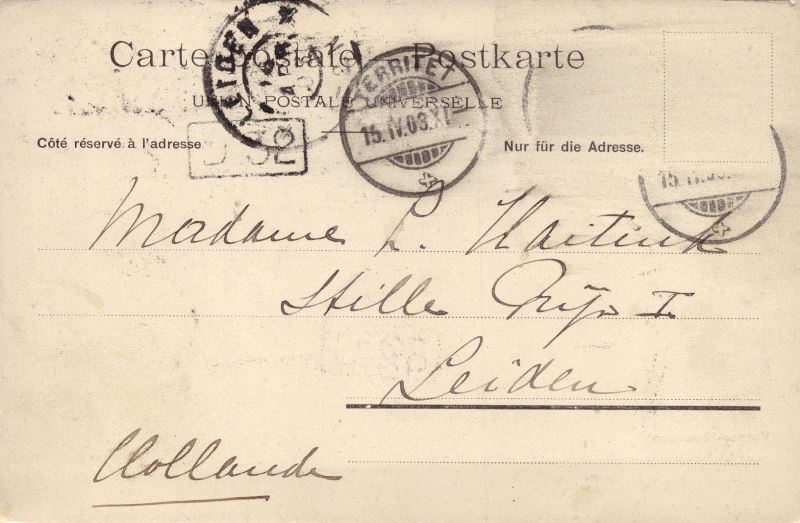 Carte Postale Postkarte
UNION POSTALE UNIVERSELLE
Côté réservé à l'adresse
Nur für die Adresse.
LEIDEN
TERRITET
15.IV.03.XI
15.IV.03.
Madame L. Haitink
Stille Rijn I
Leiden
Hollande